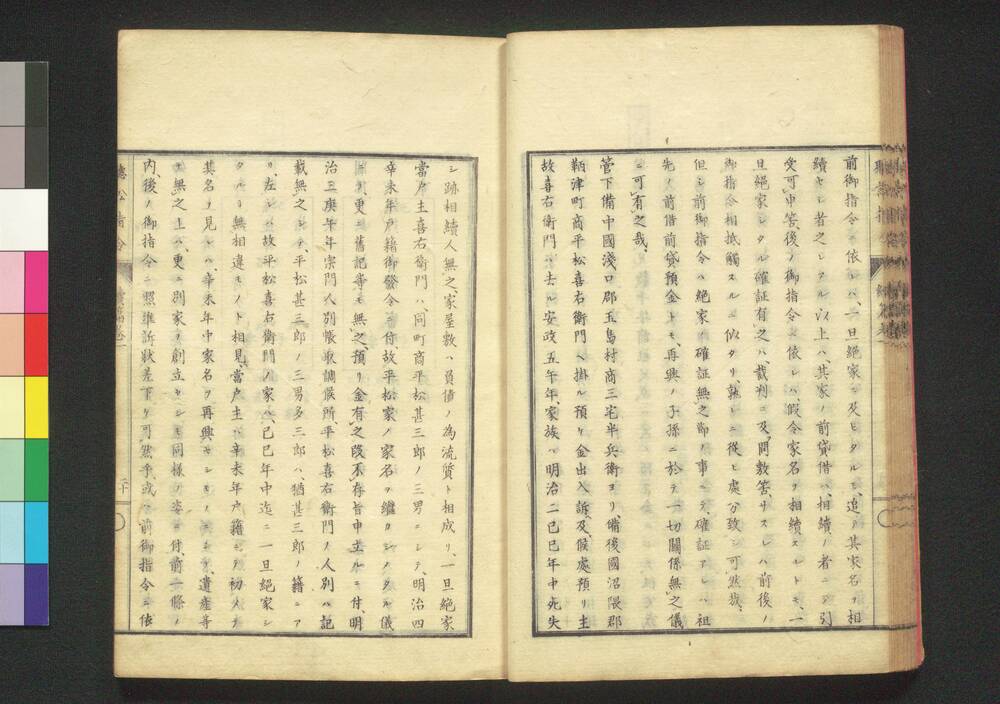 前御指令ニ依レハ、一旦絶家ニ及ヒタルモ、追テ其家名ヲ相
續セシ者之レアル以上ハ、其家ノ前貸借ハ、相續ノ者ニテ引
受可申答、後ノ御指令ニ依レハ、假令家名ヲ相續スルトモ、一
旦絶家シタル確証有之ハ、裁判ニ及間敷筈、サスレハ前後ノ
御指令相抵觸スルニ似タリ、孰レニ從ヒ處分致シ可然哉、
但シ前御指令ハ絶家ノ確証無之節ノ事ニテ、確証アレハ祖
先ノ前借前貸預金トモ、再興ノ子孫ニ於テ一切關係無之儀
ニ可有之哉、
管下備中國淺口郡玉島村商三宅半兵衛ヨリ、備後國沼隈郡
鞆津町商平松喜右衛門ヘ掛ル預ケ金出入訴及候處預リ主
故喜右衛門ハ去ル安政五午年、家族ハ明治二已巳年中死失
シ跡相續人無之、家屋敷ハ員債ノ為流質ト相成リ、一旦絶家
當戸主喜右衛門ハ、同町商平松甚三郎ノ三男ニシテ、明治四
辛未年戸籍御發令ニ付、故平松家ノ家名ヲ繼カシメタル儀
ニ更ニ舊記等モ無之、預リ金有之段不存旨申立ルニ付、明
治三庚午年宗門人別帳取調候所、平松喜右衛門ノ人別ハ記
載無之シテ、平松甚三郎ノ三男多三郎ハ、猶甚三郎ノ籍ニア
リ、左レハ故平松喜右衛門ノ家ハ、已巳年中迄ニ一旦絶家シ
タルヿ無相違モノト相見、當戸主ハ辛未年戸籍ニテ初メテ
其名ヲ見レハ、辛未年中家名ヲ再興セシモノニシテ、遺産等
モ無之上ハ、更ニ別家ヲ創立セシモ同様ノ姿ニ付、前二條ノ
内、後ノ御指令ニ照準訴状差下ケ可然乎、或ハ前御指令ニ依